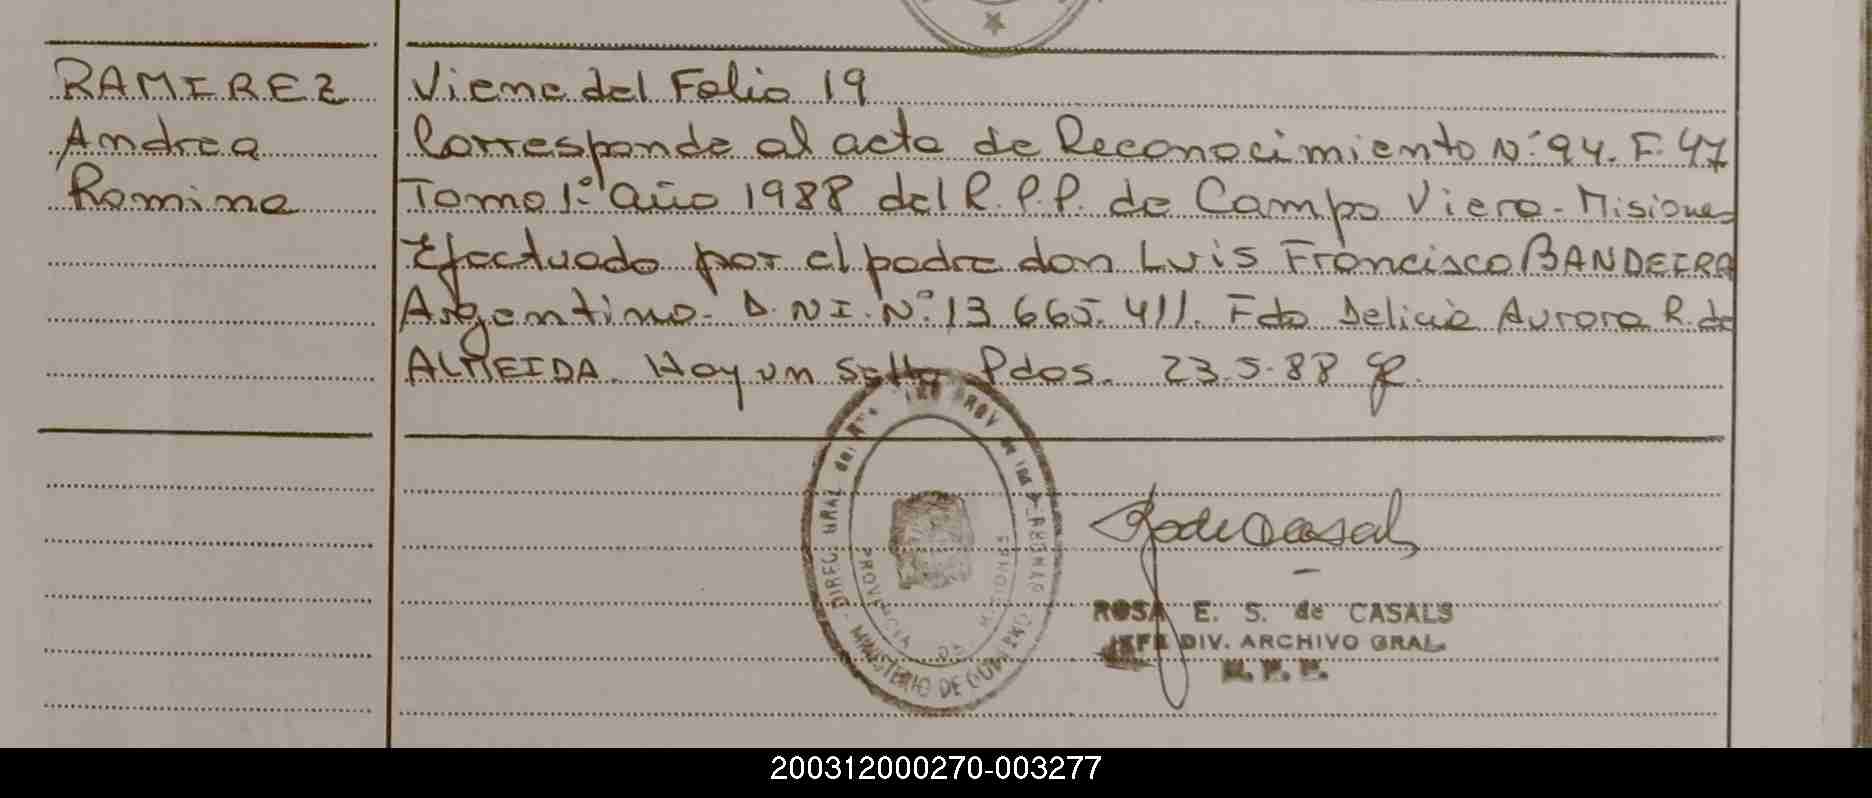 RAMIREZ
Andrea
Romina
Viene del Folio 19
Corresponde al acta de Reconocimiento N° 94. F. 47
Tomo 1° año 1988 del R.P.P. de Campo Viera - Misiones
Efectuado por el padre don Luis Francisco BANDEIRA
Argentino - D.N.I. N° 13.665.411. Fdo Delicia Aurora R. de
ALMEIDA. Hay un sello Pdos. 23.5.88
DIREC. GRAL del PROV de las PERSONAS
MINISTERIO DE GOBIERNO
PROVINCIA DE MISIONES
ROSA E. S. de CASALS
JEFE DIV. ARCHIVO GRAL.
R. P. P.
200312000270-003277